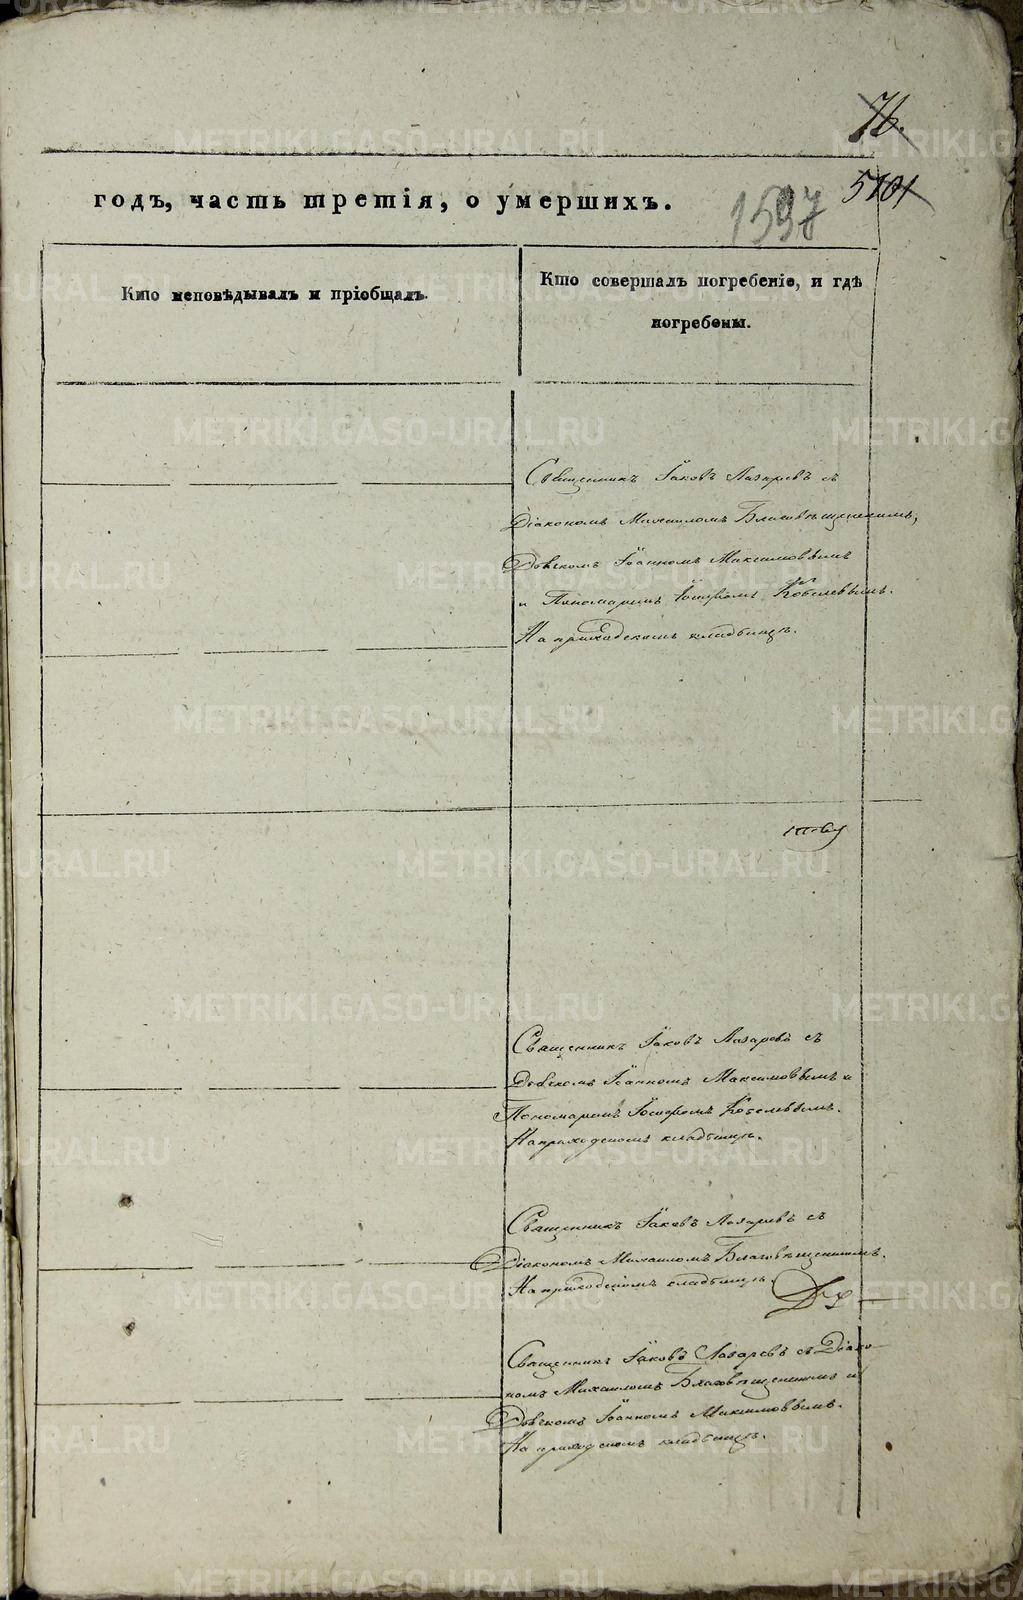 76.
5101
1597
годъ, часть третія, о умершихъ.
Кто исповѣдывалъ и пріобщалъ.
Кто совершалъ погребеніе, и гдѣ
погребены.
Священникъ Іаковъ Лазаревъ съ
Діакономъ Михаиломъ Благовѣщенскимъ,
Іоанномъ Максимовымъ
и Пономаремъ Іосифомъ Кобелевымъ.
На приходскомъ кладбищѣ.
Священникъ Іаковъ Лазаревъ съ
Іоанномъ Максимовымъ и
Пономаремъ Іосифомъ Кобелевымъ.
На приходскомъ кладбищѣ.
Священникъ Іаковъ Лазаревъ съ
Діакономъ Михаиломъ Благовѣщенскимъ.
На приходскомъ кладбищѣ.
Священникъ Іаковъ Лазаревъ съ Діако-
номъ Михаиломъ Благовѣщенскимъ и
Іоанномъ Максимовымъ.
На приходскомъ кладбищѣ.
METRIKI.GASO-URAL.RU